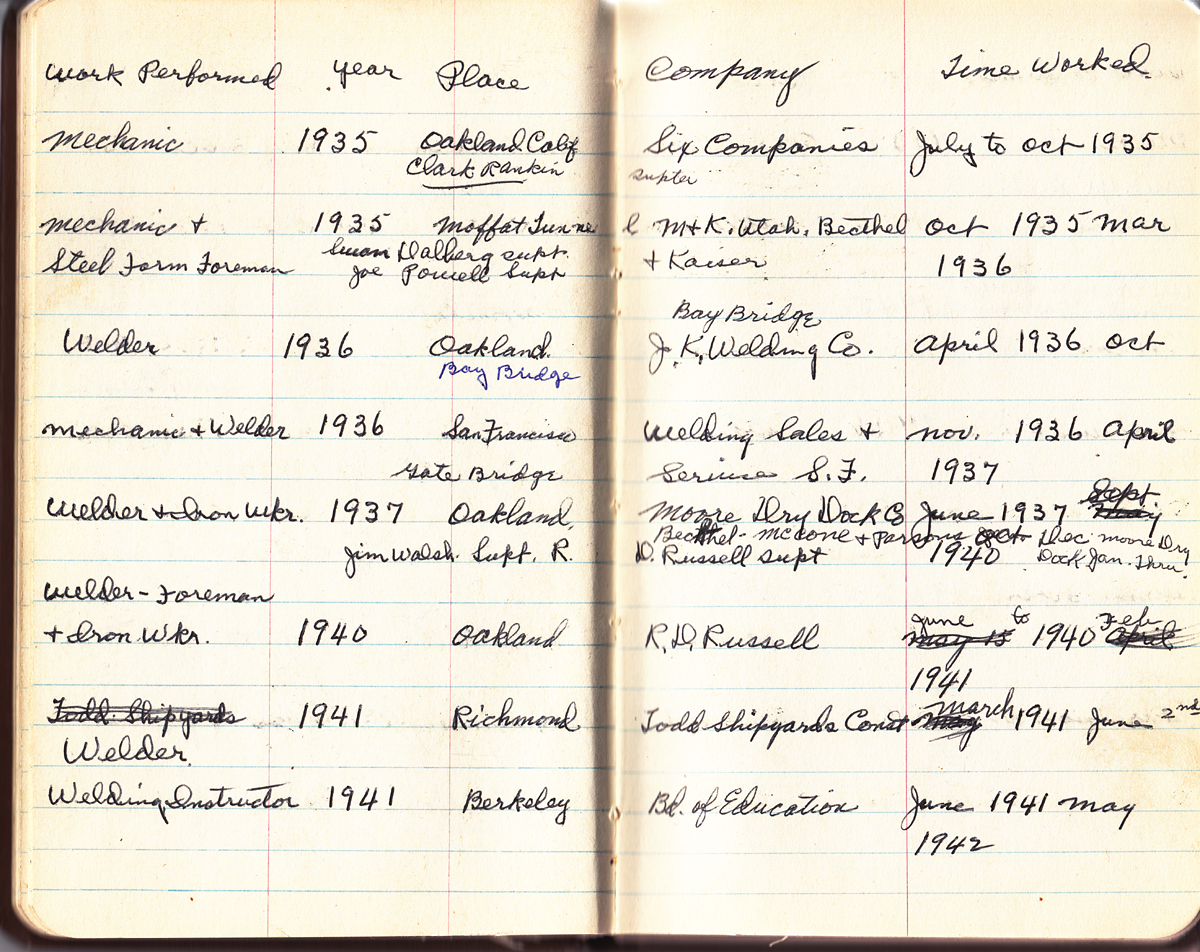 Work Performed Year Place Company Time Worked
Mechanic 1935 Oakland Calif Six Companies July to Oct 1935
Clark Rankin supter
Mechanic + 1935 Moffat Tunne l M+K. Utah, Becthel Oct 1935 Mar
Swan Dalberg supt.
Steel Form Foreman Joe Powell Supt + Kaiser 1936
Bay Bridge
Welder 1936 Oakland. J.K. Welding Co. April 1936 Oct
Bay Bridge
Mechanic + Welder 1936 San Francisco Welding Sales + Nov. 1936 April
Gate Bridge Serivse S.F. 1937
Sept
Welder + Iron Wkr. 1937 Oakland, Moore Dry Dock Co June 1937 May
Becthel - McCone + Parsons Oct Dec Moore Dry
Jim Walsh. Supt. R. D. Russell supt 1940 Dock Jan. Thru.
Welder - Foreman
June to Feb.
+ Iron Wkr. 1940 Oakland R.D. Russell May 15 1940 April
1941
March
Todd Shipyards 1941 Richmond Todd Shipyards Const May 1941 June 2nd
Welder
Welding Instructor 1941 Berkeley Bd. of Education June 1941 May
1942